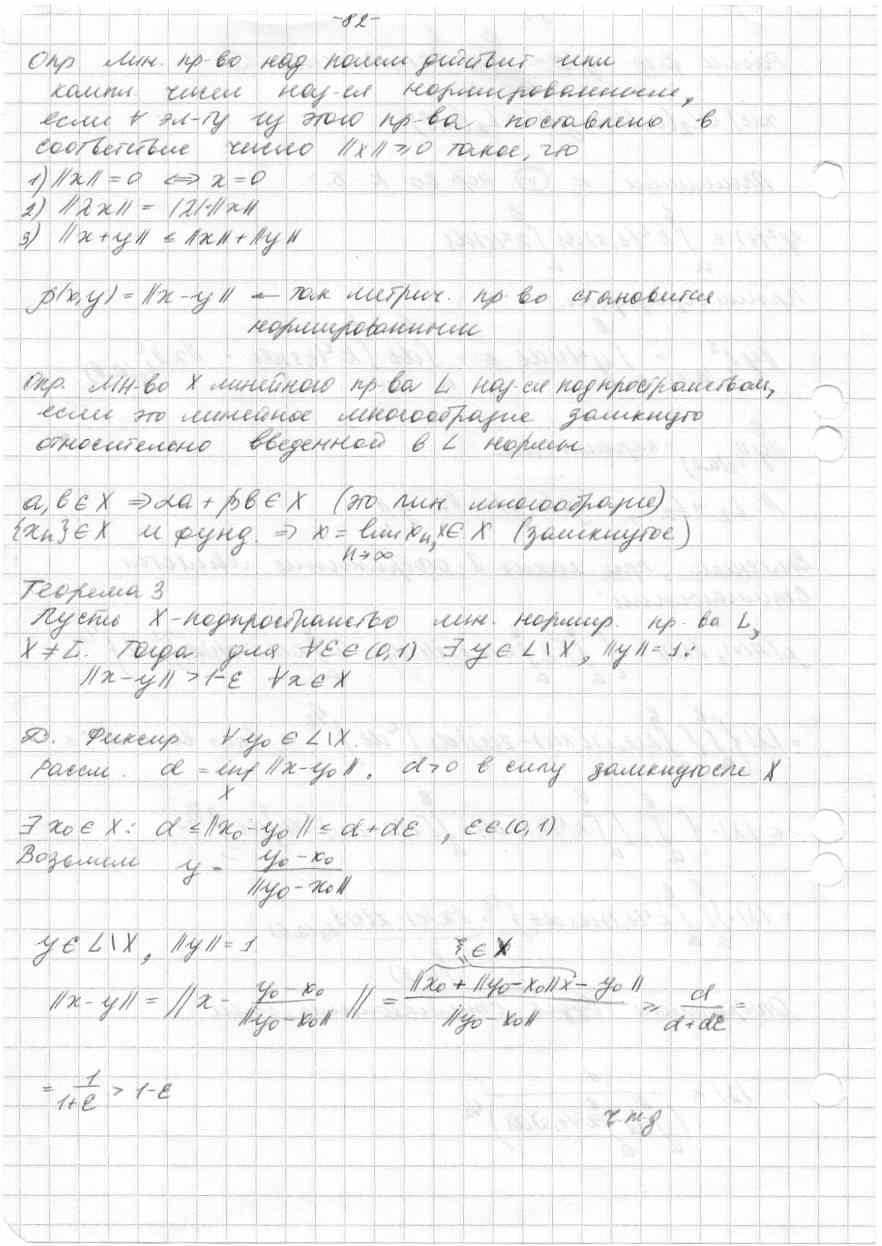 -82-
Опр Лин. пр-во над полем действит или
компл. чисел наз-ся нормированным,
если ∀ эл-ту из этого пр-ва поставлено в
соответствие число ||x|| ≥ 0 такое, что
1) ||x|| = 0 ⇔ x = 0
2) ||αx|| = |α|·||x||
3) ||x+y|| ≤ ||x|| + ||y||
ρ(x,y) = ||x-y|| ← так метрич. пр-во становится
нормированным
Опр. Мн-во X линейного пр-ва L наз-ся подпространством,
если это линейное многообразие замкнуто
относительно введенной в L нормы
a, b ∈ X ⇒ αa + βb ∈ X (это лин. многообразие)
{xₙ} ∈ X и фунд. ⇒ x = lim xₙ, x ∈ X (замкнутое)
n→∞
Теорема 3
Пусть X-подпространство лин. нормир. пр-ва L,
X ≠ L. Тогда для ∀ε ∈ (0,1) ∃ y ∈ L\X, ||y|| = 1:
||x-y|| > 1-ε ∀x ∈ X
Д. Фиксир ∀ y₀ ∈ L\X.
Рассм. d = inf ||x-y₀||. d>0 в силу замкнутости X
X
∃ x₀ ∈ X: d ≤ ||x₀-y₀|| ≤ d+dε, ε ∈ (0,1)
Возьмем y = (y₀-x₀)/||y₀-x₀||
y ∈ L\X, ||y|| = 1
ξ ∈ X
||x-y|| = ||x - (y₀-x₀)/||y₀-x₀|| || = ||x₀ + ||y₀-x₀||x - y₀||/||y₀-x₀|| ≥ d/(d+dε) =
= 1/(1+ε) > 1-ε
ч т д